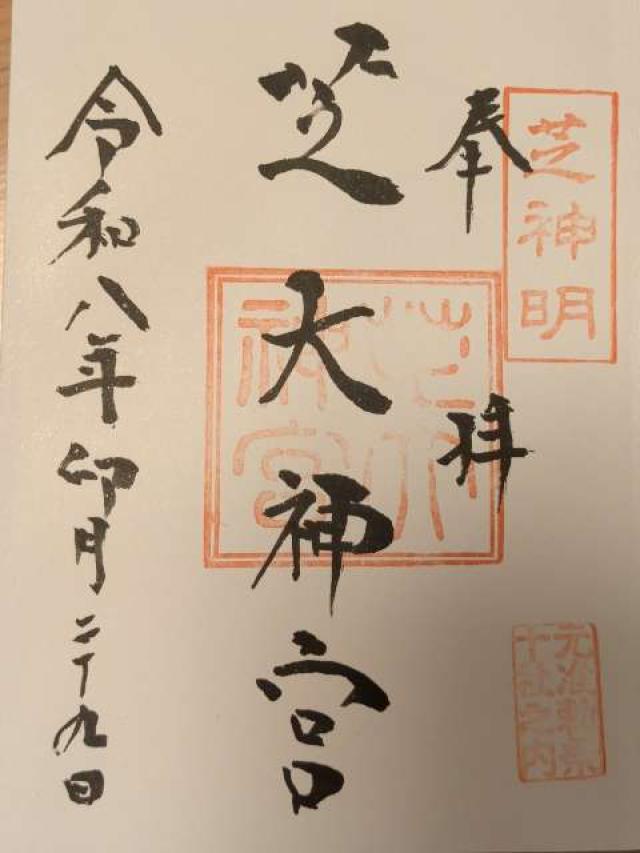 芝神明
奉拝
芝大神宮
芝大神宮
元准勅祭
十社之内
令和八年卯月二十九日